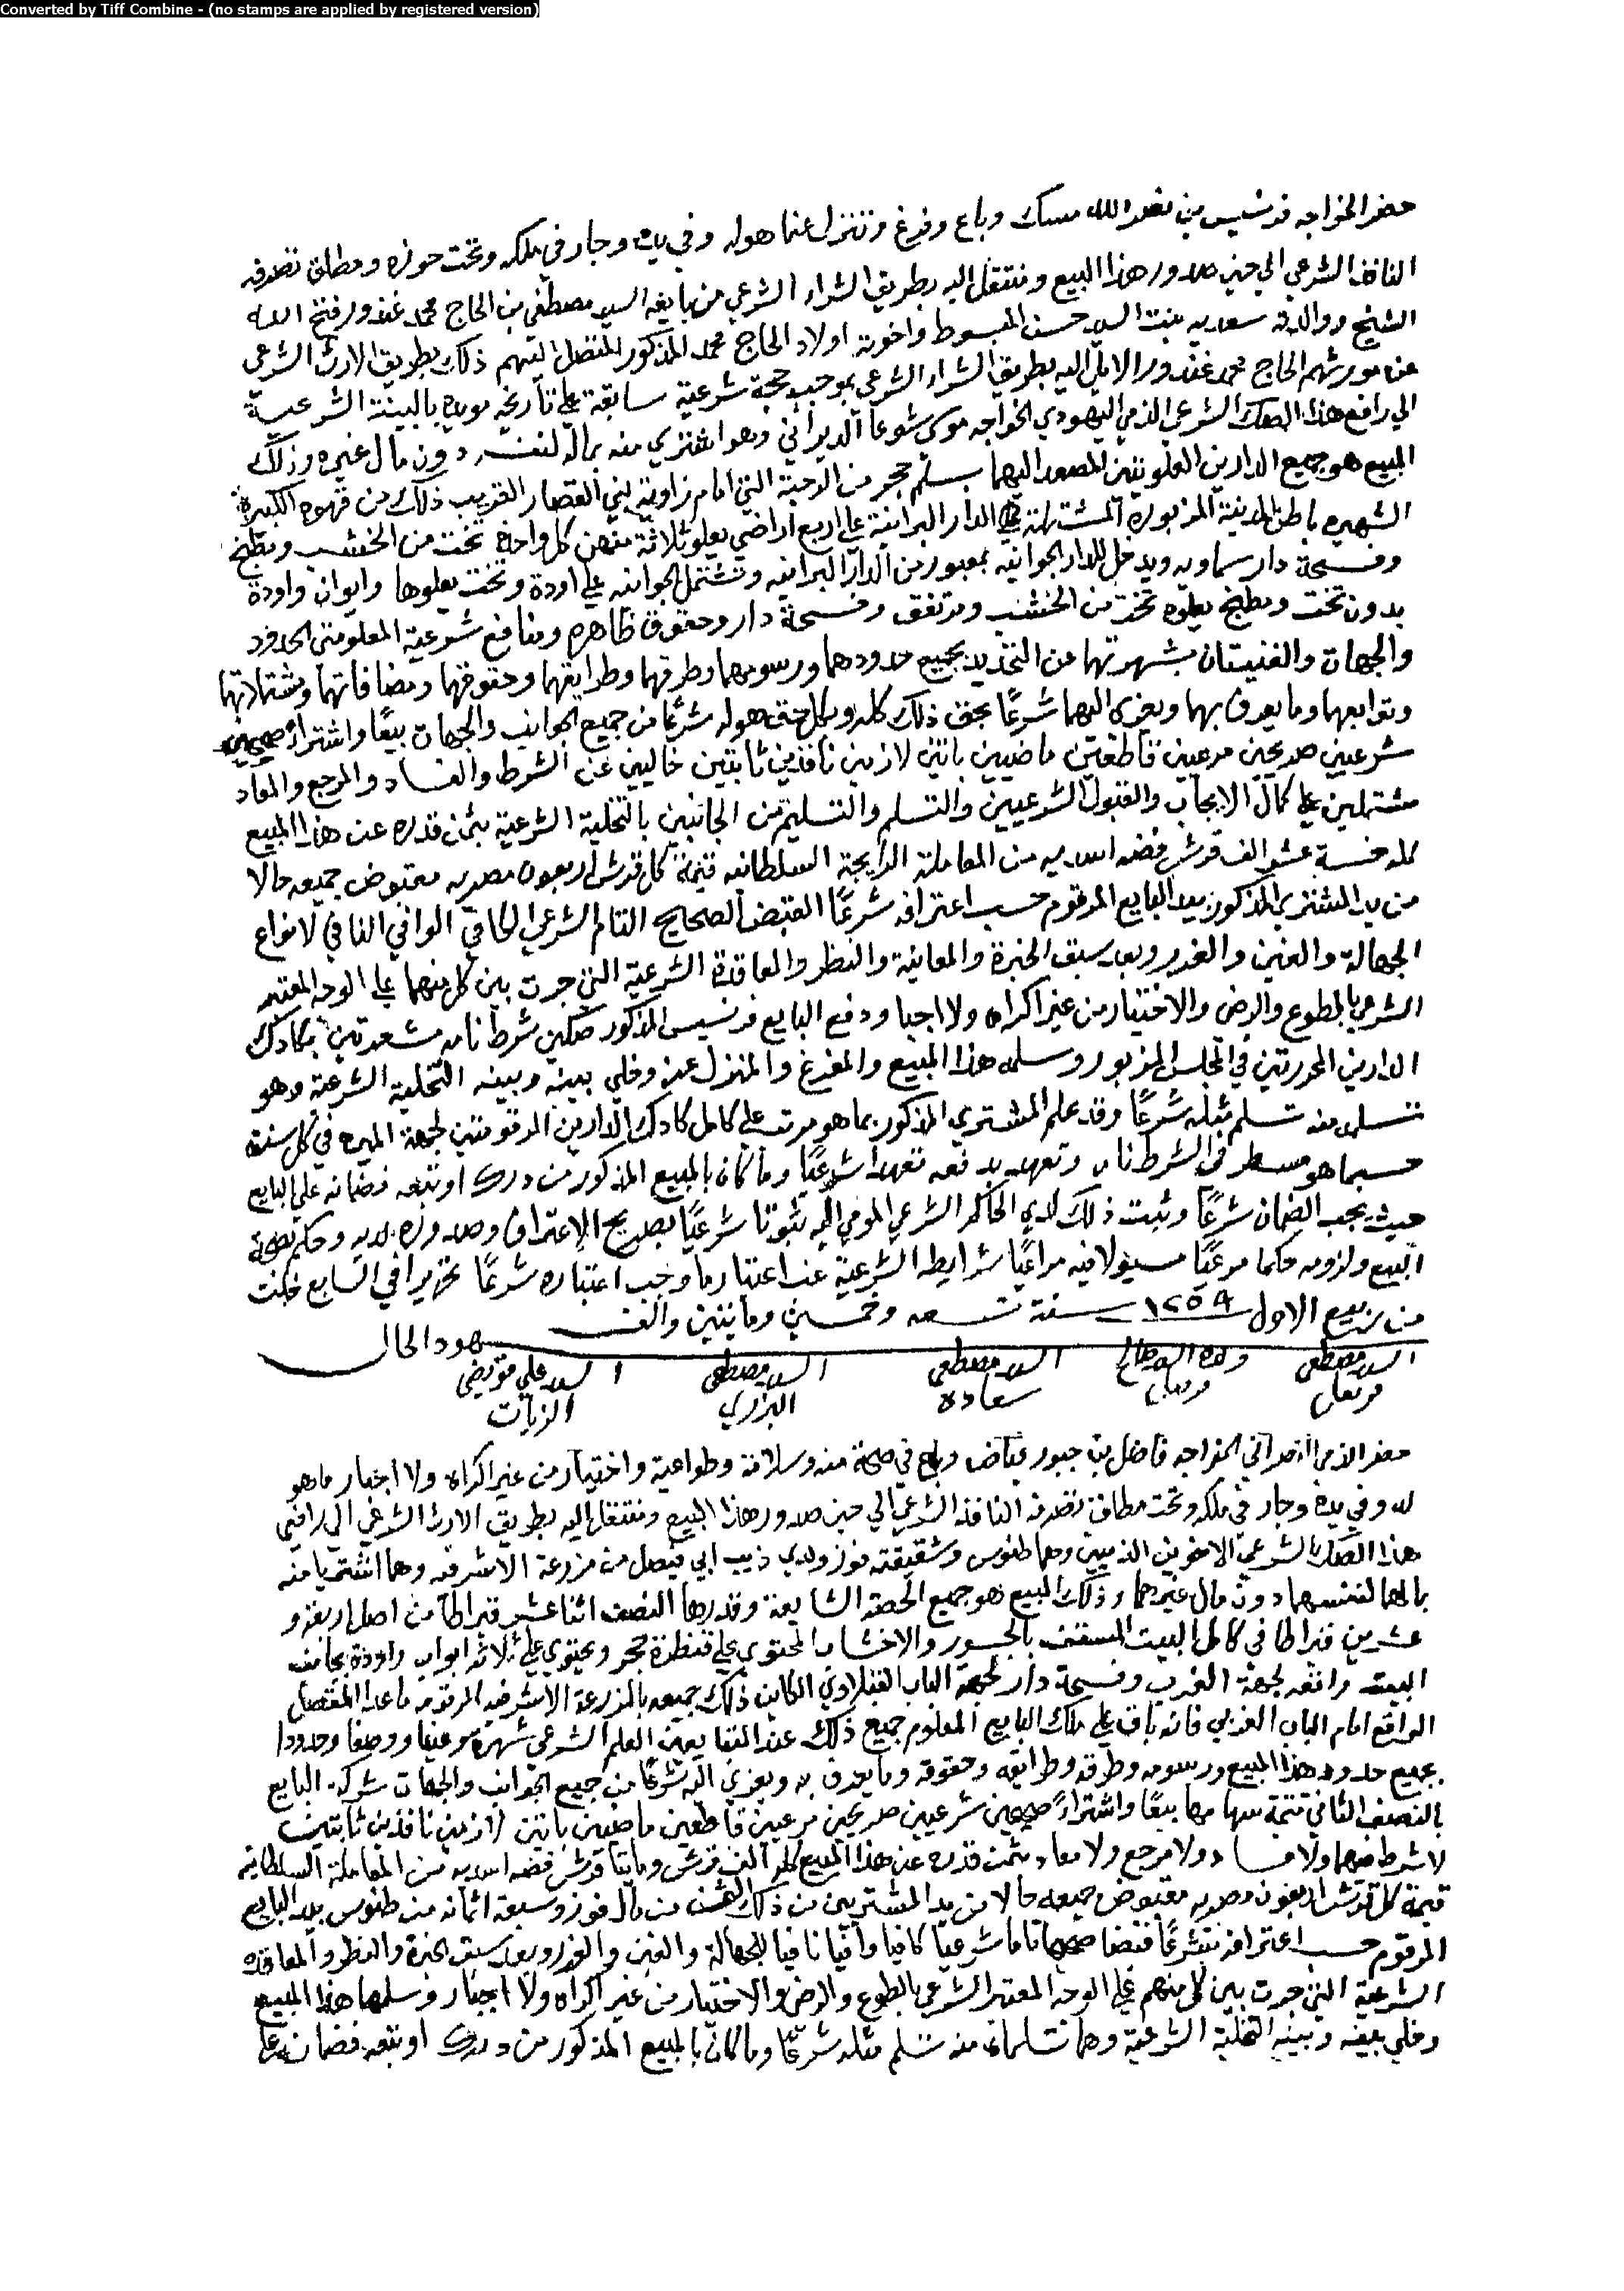 Converted by Tiff Combine - (no stamps are applied by registered version)
حضر الخواجه فرنسيس بن نصر الله مسك وباع وفرغ وتنزل عنما هوله وفي يده وجار في ملكه وتحت حوزه ومطلق تصرفه
النافذ الشرعي الي حين صدور هذا البيع ومنتقل اليه بطريق الشراء الشرعي من بايعه السيد مصطفى بن الحاج محمد غندور فتح الله
الشيخ ووالدته سعديه بنت السيد حسن المبسوط واخوته اولاد الحاج محمد المذكور المتصل اليهم ذلك بطريق الارث الشرعي
عن مورثهم الحاج محمد غندور الايل اليه بطريق الشراء الشرعي بموجب حجة شرعية سابقة علي تاريخه مويدة بالبينة الشرعية
الي رافع هذا الصك الشرعي الذمي اليهودي الخواجه موسى شوعا الديراني وهو اشترى منه بماله لنفسه دون مال غيره وذلك
المبيع هو جميع الدارين العلويتين المصعد اليهما بسلم حجر من الرحبة التي امام زاوية بني القصار القريب ذلك من قهوه الكبيرة
الشهيره باطن المدينة المزبوره المشتملة الدار البرانية علي اربع اراضي يعلو ثلاثة منهن كل واحدة تخت من الخشب ومطبخ
وفسحة دار سماويه ويدخل للدار الجوانية بعبور من الدار البرانيه وتشتمل الجوانيه علي اودة وتخت يعلوها وايوان واودة
بدون تخت ومطبخ يعلوه تخت من الخشب ومرتفق وفسحة دار وحقوق ظاهره ومنافع شرعية المعلومتي الحدود
والجهات والغنيتان بشهرتهما عن التحديد بجميع حدودهما ورسومهما وطرقهما وطرايقهما وحقوقهما ومضافاتهما ومشتملاتهما
وتوابعهما وما يعرف بهما ويعزى اليهما شرعًا بحق ذلك كله وبكل حق هوله شرعًا من جميع الجوانب والجهات بيعًا واشتراءً صحيحين
شرعيين صريحين مرعيين قاطعين ماضيين باتين لازمين نافذين ثابتين خاليين عن الشرط والفساد والمرجع والمعاد
مشتملين علي كمال الايجاب والقبول الشرعيين والتسلم والتسليم من الجانبين بالتخلية الشرعية بثمن قدره عن هذا المبيع
كله خمسة عشر الف قرش فضه اسديه من المعاملة الرايجة السلطانيه قيمة كل قرش اربعون مصريه مقبوض جميعه حالا
من يد المشتري المذكور بيد البايع المرقوم حسب اعترافه شرعًا القبض الصحيح التام الشرعي الكافي الوافي النافي لانواع
الجهالة والغبن والغرر وبعد سبق الخبرة والمعاينة والنظر والمعاقدة الشرعية التي جرت بين كل منهما علي الوجه المعتبر
الشرعي بالطوع والرضى والاختيار من غير اكراه ولا اجبار ودفع البايع فرنسيس المذكور صكين شرطنامه مشعرتين بكادك
الدارين المحررتين في المجلس المزبور وسلمه هذا المبيع والمفرغ والمنزل عنه وخلي بينه وبينه التخلية الشرعية وهو
تسلمه منه تسلم مثله شرعًا وقد علم المشتري المذكور بما هو مرتب علي كامل كادك الدارين المرقومتين لجهة الميره في كل سنة
حسبما هو مسطر في الشرطنامه وتعهد بدفعه تعهدا شرعيًا وما كان بالمبيع المذكور من درك او تبعه فضمانه علي البايع
حيث يجب الضمان شرعًا وثبت ذلك لدي الحاكم الشرعي المومي اليه ثبوتا شرعيًا بصريح الاعتراف وصدوره لديه وحكم بصحة
البيع ولزومه حكما مرعيًا مسيولا فيه مراعيًا شرايطه الشرعية عند اعتبار ما وجب اعتباره شرعًا تحريرا في السابع خلت
من ربيع الاول ١٢٥٩ سنة تسعه وخمسين ومايتين والف
شهود الحال
السيد مصطفى قرنفل ولده السيد صالح قرنفل السيد مصطفى سعاده السيد مصطفى البزري السيد علي الزيات
حضر الذمي النصراني الخواجه فاضل بن جبور فياض وباع في صحة منه وسلامة وطواعية واختيار من غير اكراه ولا اجبار ما هو
له وفي يده وجار في ملكه وتحت مطلق تصرفه النافذ الشرعي الي حين صدور هذا المبيع ومنتقل اليه بطريق الارث الشرعي الي رافعي
هذا الصك الشرعي الاخوين الذميين وهما طنوس وشقيقته فوز ولدي ذيب ابي فيصل من مزرعة الاشرفيه وهما اشتريا منه
بمالهما لنفسهما دون مال غيرهما وذلك المبيع هو جميع الحصة الشايعة وقدرها النصف اثنا عشر قيراطا من اصل اربعة و
عشرين قيراطا في كامل البيت المسقف بالجسور والاخشاب المحتوي علي قنطرة حجر ويحتوي علي ثلاثه ابواب واودة بجانب
البيت مرافقه لجهة الغرب وفسحة دار لجهة الباب القبلاوي الكاين ذلك جميعه بالمزرعة الاشرفيه المرقومه ماعدا
الواقع امام الباب الغربي فانه باق علي ملك البايع المعلوم جميع ذلك عند المتبايعين العلم الشرعي شهرة مرعيا ووصفا وحدودا
بجميع حدود هذا المبيع ورسومه وطرقه وطرايقه وحقوقه وما يعرف به ويعزي اليه شرعًا من جميع الجوانب والجهات شركة البايع
بالنصف الثاني تتمة سهامها بيعًا واشتراءً صحيحين شرعيين صريحين مرعيين قاطعين ماضيين باتين لازمين نافذين ثابتين
لا شرط فيهما ولا فساد ولا مرجع ولا معاد بثمن قدره عن هذا المبيع كله الف قرش ومايتا قرش فضه اسديه من المعاملة السلطانيه
قيمة كل قرش اربعون مصريه مقبوض جميعه حالا من يد المشتريين من ذلك الثمن من مال فوز وسبعة اثمانه من طنوس بيد البايع
المرقوم حسب اعترافه شرعًا قبضا صحيحا تاما شرعيًا كافيا وافيا نافيا للجهالة والغبن والغرر وبعد سبق الخبرة والنظر والمعاقده
الشرعية التي جرت بين كل منهم علي الوجه المعتبر الشرعي بالطوع والرضى والاختيار من غير اكراه ولا اجبار وسلمهما هذا المبيع
وخلي بينه وبينهما التخلية الشرعية وهما تسلماه منه تسلم مثله شرعًا وما كان بالمبيع المذكور من درك او تبعه فضمانه علي